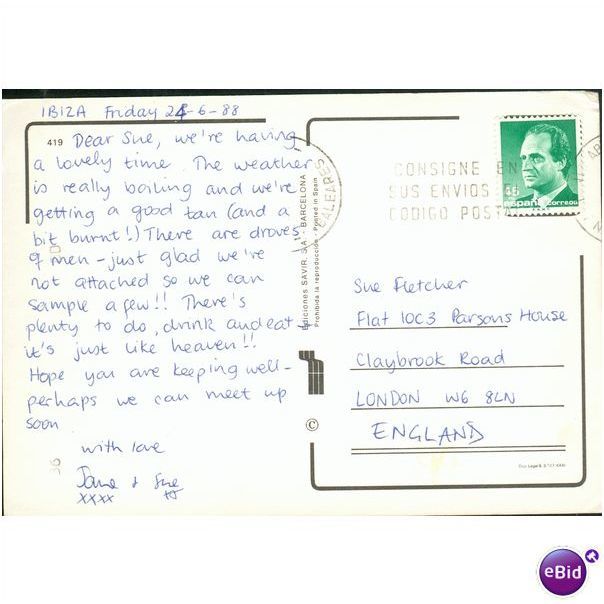 IBIZA Friday 24-6-88
419 Dear Sue, we're having
a lovely time. The weather
is really boiling and we're
getting a good tan (and a
bit burnt!) There are droves
of men - just glad we're
not attached so we can
sample a few!! There's
plenty to do, drink and eat -
it's just like heaven!!
Hope you are keeping well -
perhaps we can meet up
soon
with love
Jane & Sue
xxxx
Ediciones SAVIR, S.A. - BARCELONA
Prohibida la reproducción - Printed in Spain
©
BALEARES
CONSIGNE EN
SUS ENVIOS
CODIGO POSTA
45
españa correos
Sue Fletcher
Flat 10C3 Parsons House
Claybrook Road
LONDON W6 8LN
ENGLAND
eBid